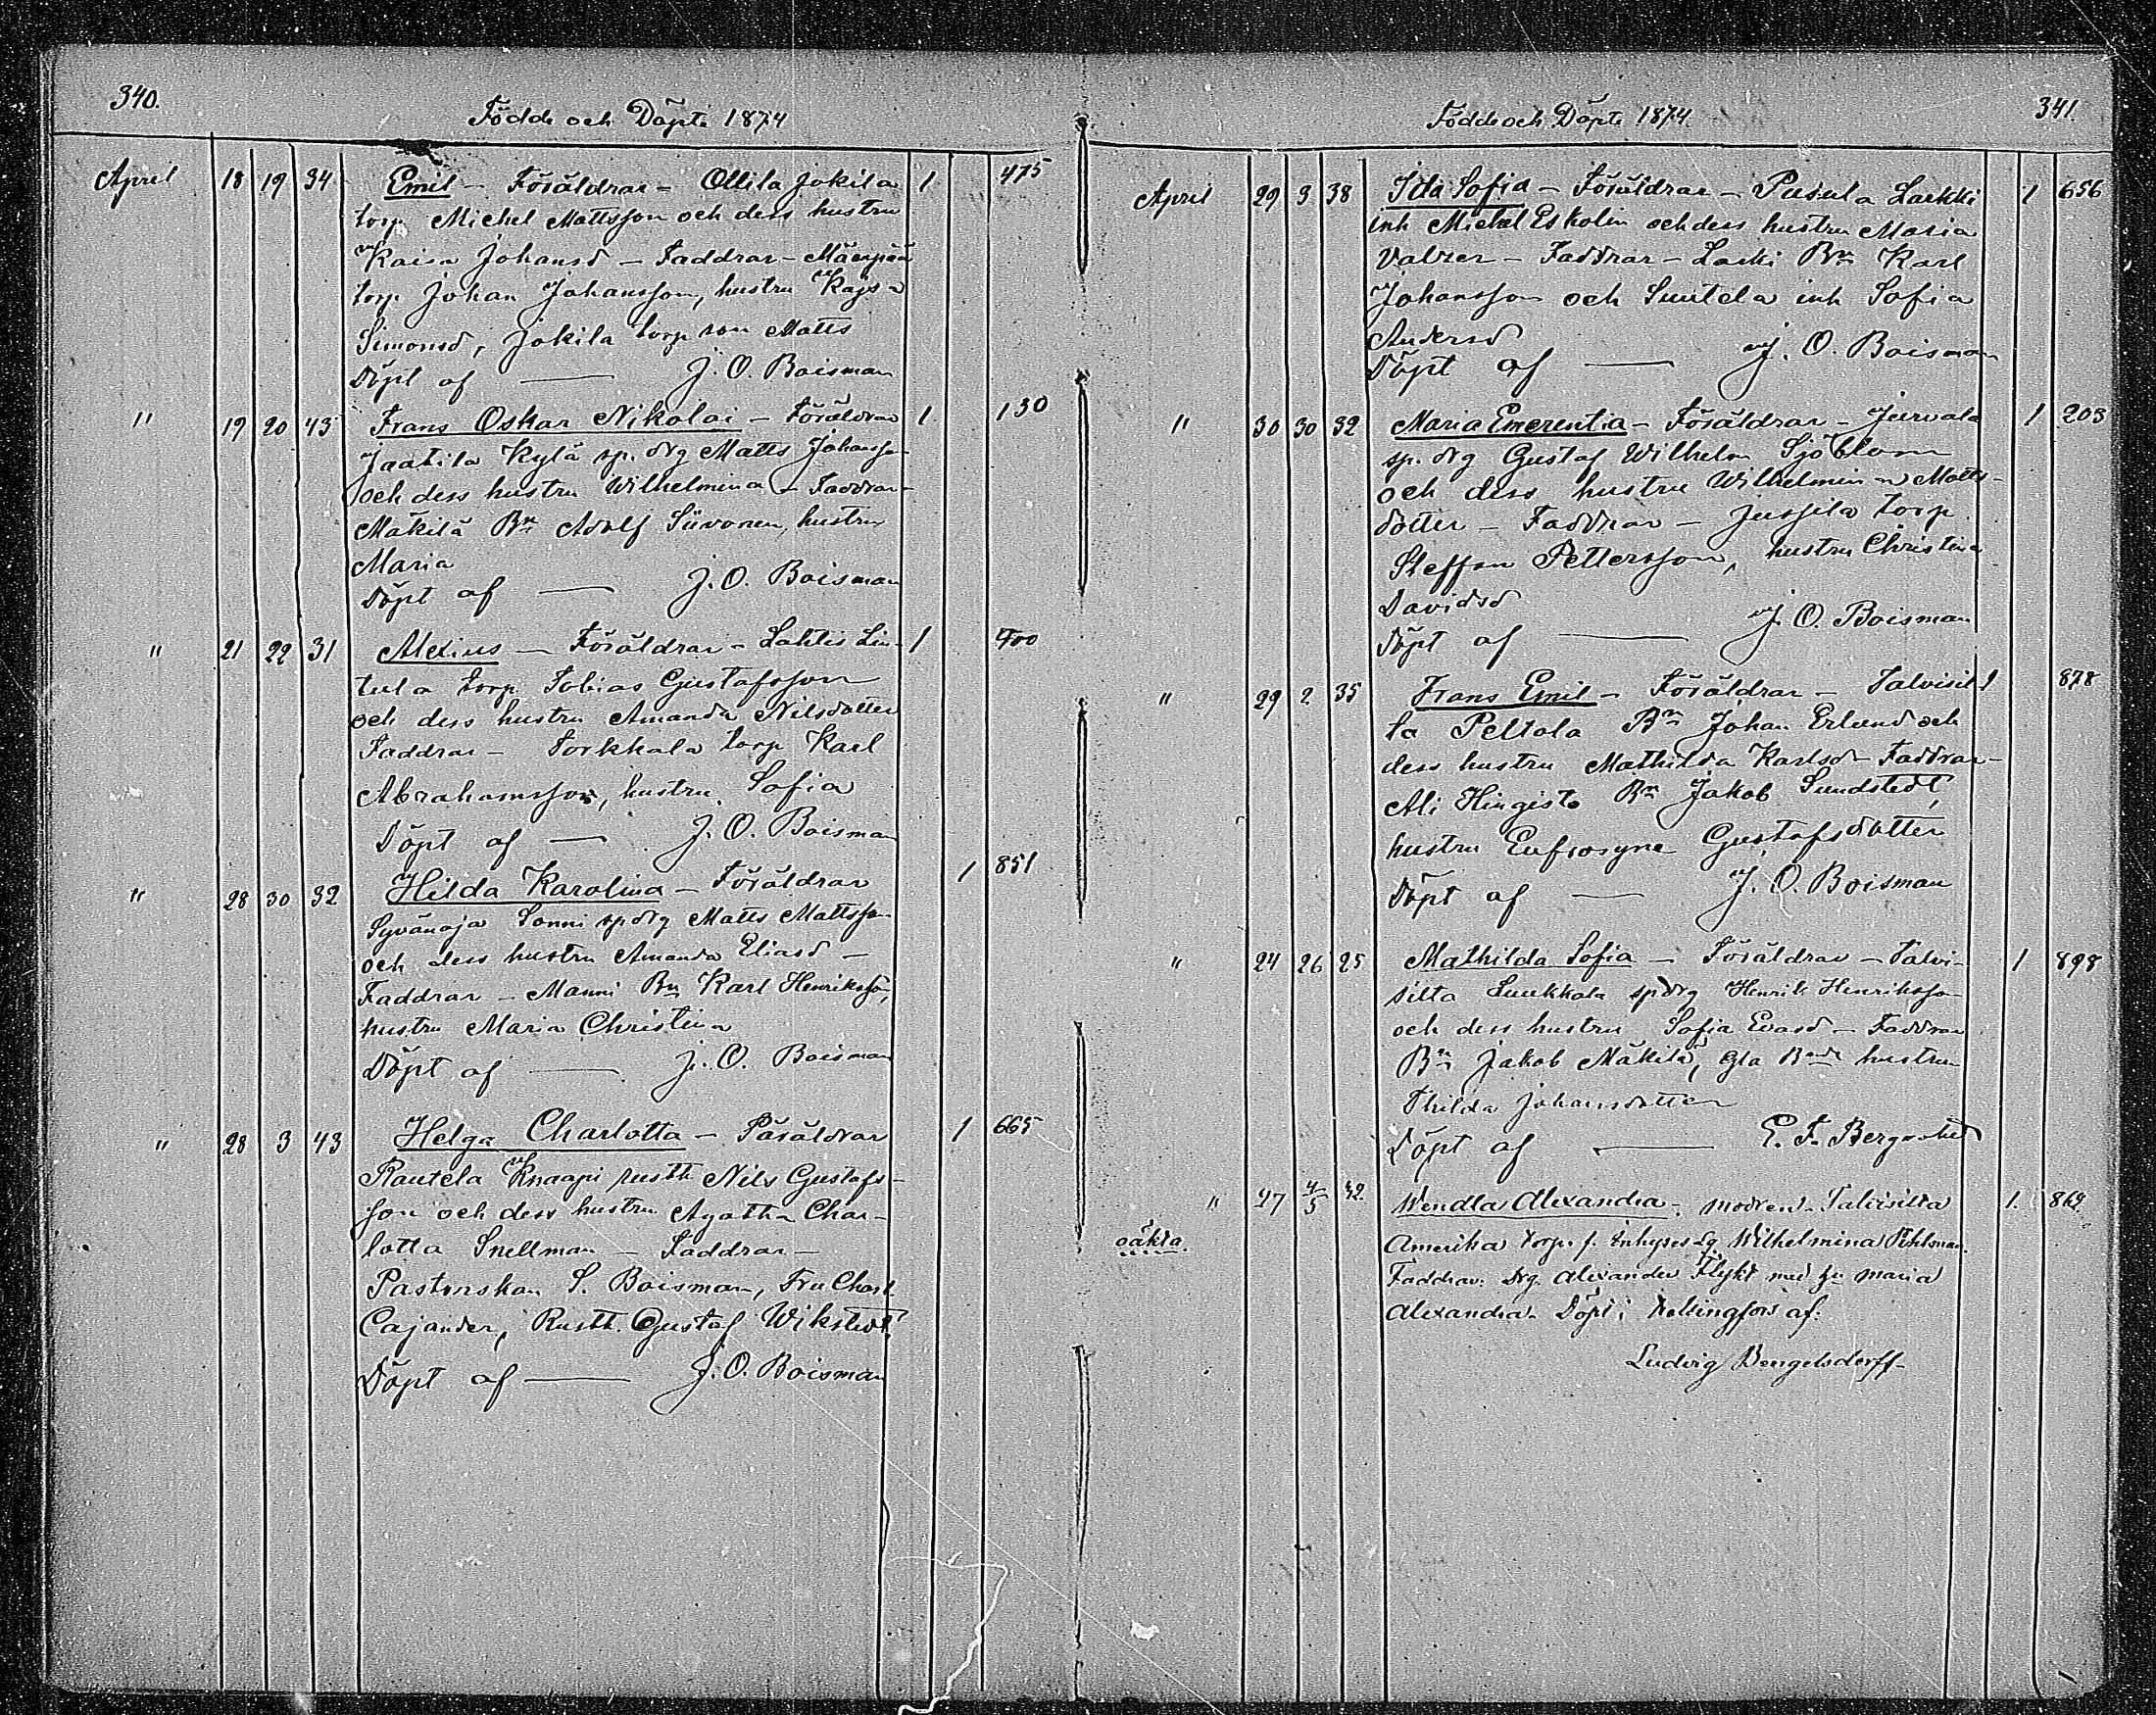 340.
Födde och Döpte 1874
April 18 19 34 Emil – Föräldrar – Ollila Jokila 1 475
torp. Michel Mattsson och dess hustru
Kaisa Johansd – Faddrar – Mäenpää
torp. Johan Johansson, hustru Kajsa
Simonsd, Jokila torp son Matts
Döpt af — J. O. Boisman
" 19 20 43 Frans Oskar Nikolai – Föräldrar 1 130
Jaatila Kylä sp. drg Matts Johansson
och dess hustru Wilhelmina – Faddrar –
Mäkilä Bn Adolf Siivonen, hustru
Maria
Döpt af — J. O. Boisman
" 21 22 31 Alexius – Föräldrar – Lahtis Lin- 1 400
tula torp. Tobias Gustafsson
och dess hustru Amanda Nilsdotter
Faddrar – Torkhala torp Karl
Abrahamsson, hustru Sofia
Döpt af — J. O. Boisman
" 28 30 32 Hilda Karolina – Föräldrar 1 851
Syvänoja Sonni sp drg Matts Mattsson
och dess hustru Amanda Eliasd –
Faddrar – Manni Bn Karl Henriksson,
hustru Maria Christina
Döpt af — J. O. Boisman
" 28 3 43 Helga Charlotta – Föräldrar 1 665
Rautela Knaapi rusth Nils Gustafs-
son och dess hustru Agatha Char-
lotta Snellman – Faddrar –
Pastorskan S. Boisman, Fru Charl.
Cajander, Rusth. Gustaf Wikstedt
Döpt af — J. O. Boisman
Födde och Döpte 1874.
341.
April 29 3 38 Ida Sofia – Föräldrar – Pusula Larkki 1 656
inh Michel Eskolin och dess hustru Maria
Valzer – Faddrar – Larki Bn Karl
Johansson och Suutela inh Sofia
Andersd
Döpt af — J. O. Boisman
" 30 30 32 Maria Emerentia – Föräldrar – Jurvala 1 203
sp. drg Gustaf Wilhelm Sjöblom
och dess hustru Wilhelmina Matts-
dotter – Faddrar – Jussila torp
Steffan Pettersson, hustru Christina
Davidsd
Döpt af — J. O. Boisman
" 29 2 35 Frans Emil – Föräldrar – Talvisil- 1 878
ta Peltola Bn Johan Erlund och
dess hustru Mathilda Karlsd – Faddrar –
Ali Hingisto Bn Jakob Sundstedt,
hustru Eufrosyne Gustafsdotter
Döpt af — J. O. Boisman
" 24 26 25 Mathilda Sofia – Föräldrar – Talvi- 1 898
silta Luukkala sp drg Henrik Henriksson
och dess hustru Sofia Evasd – Faddrar
Bn Jakob Mäkilä, gla Bonde hustru
Thilda Johansdotter
Döpt af — E. F. Bergroth
" 27 4/5 42. Wendla Alexandra – modren – Talvisilta 1. 862.
oäkta.
Amerika torp. f. Inhyses Lg Wilhelmina Pihlman.
Faddrar: Drg. Alexander Flykt med hu Maria
Alexandra. Döpt i Helsingfors af:
Ludvig Bengelsdorff.